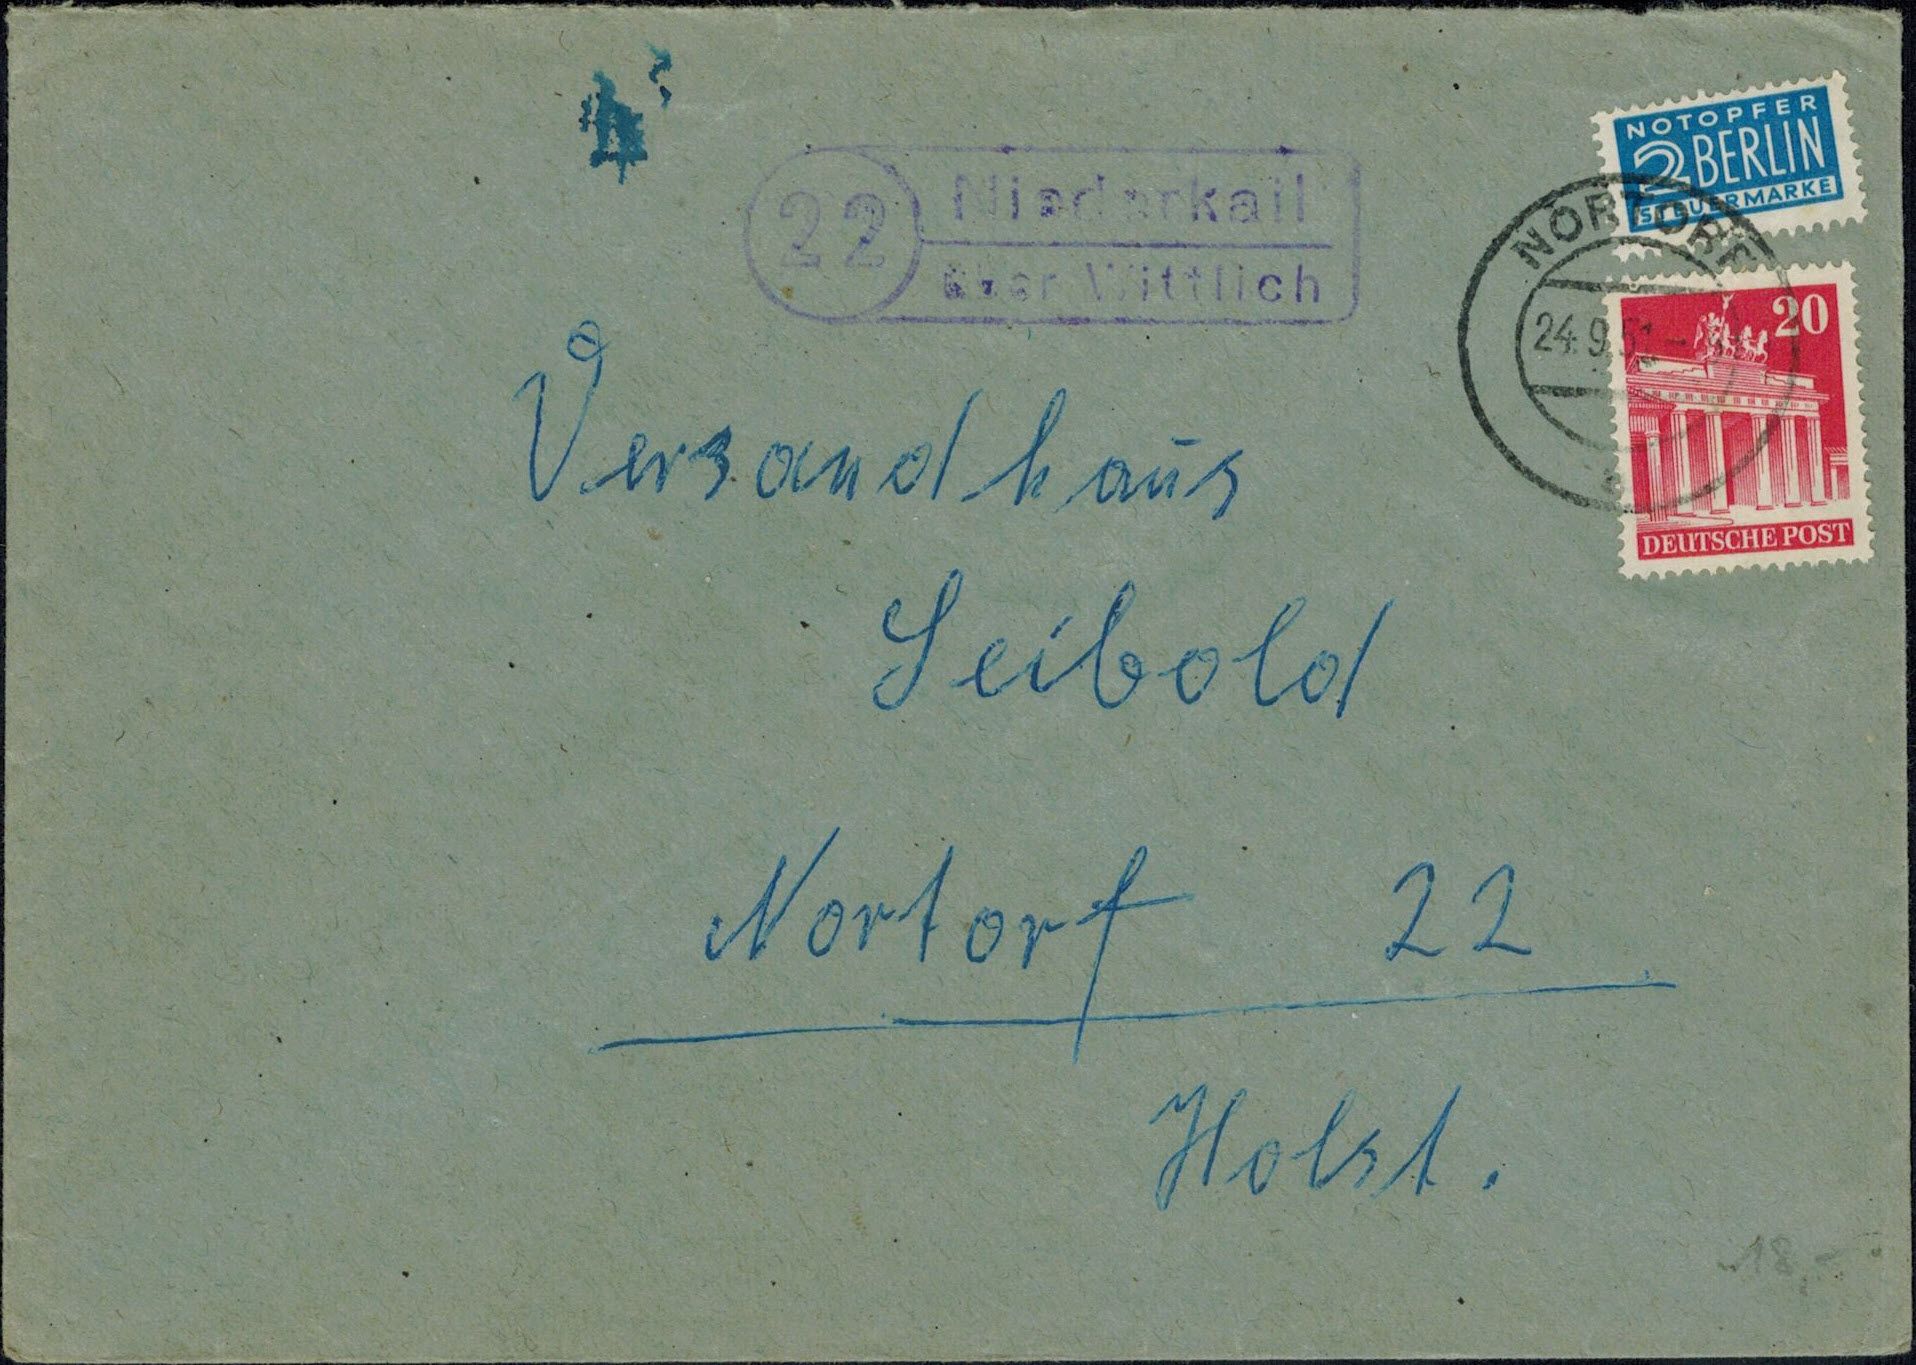 22
Niederkail
über Wittlich
NOTOPFER
2 BERLIN
STEUERMARKE
NORTORF
24.9.51
20
DEUTSCHE POST
Versandhaus
Seibold
Nortorf 22
Holst.
18,-